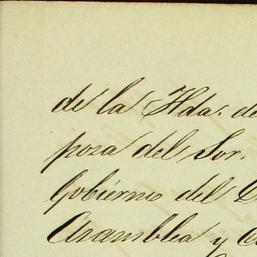 de la Hda. de
posa del Sor.
Gobierno del D
Asamblea y C